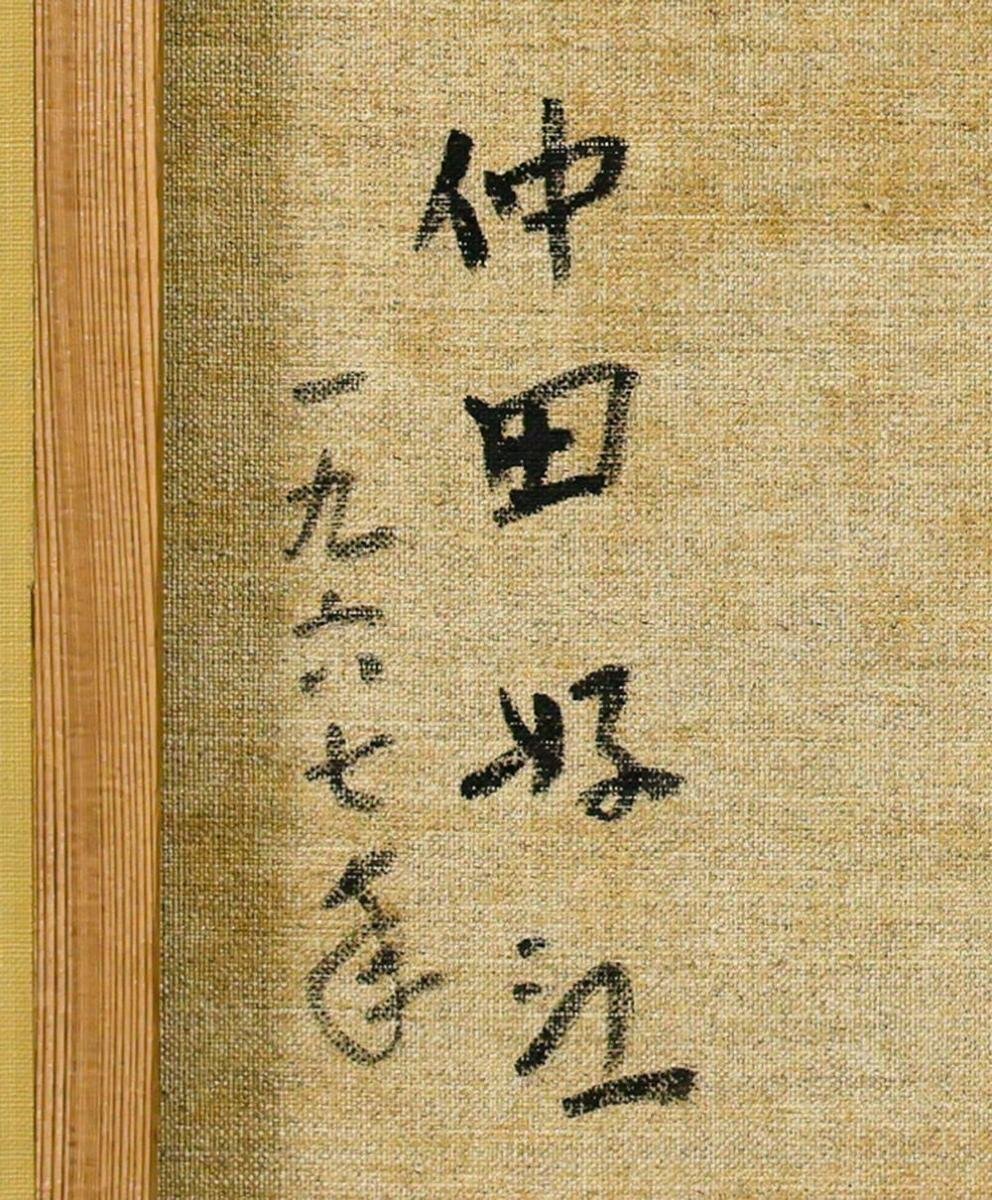 仲田好江
一九六七年